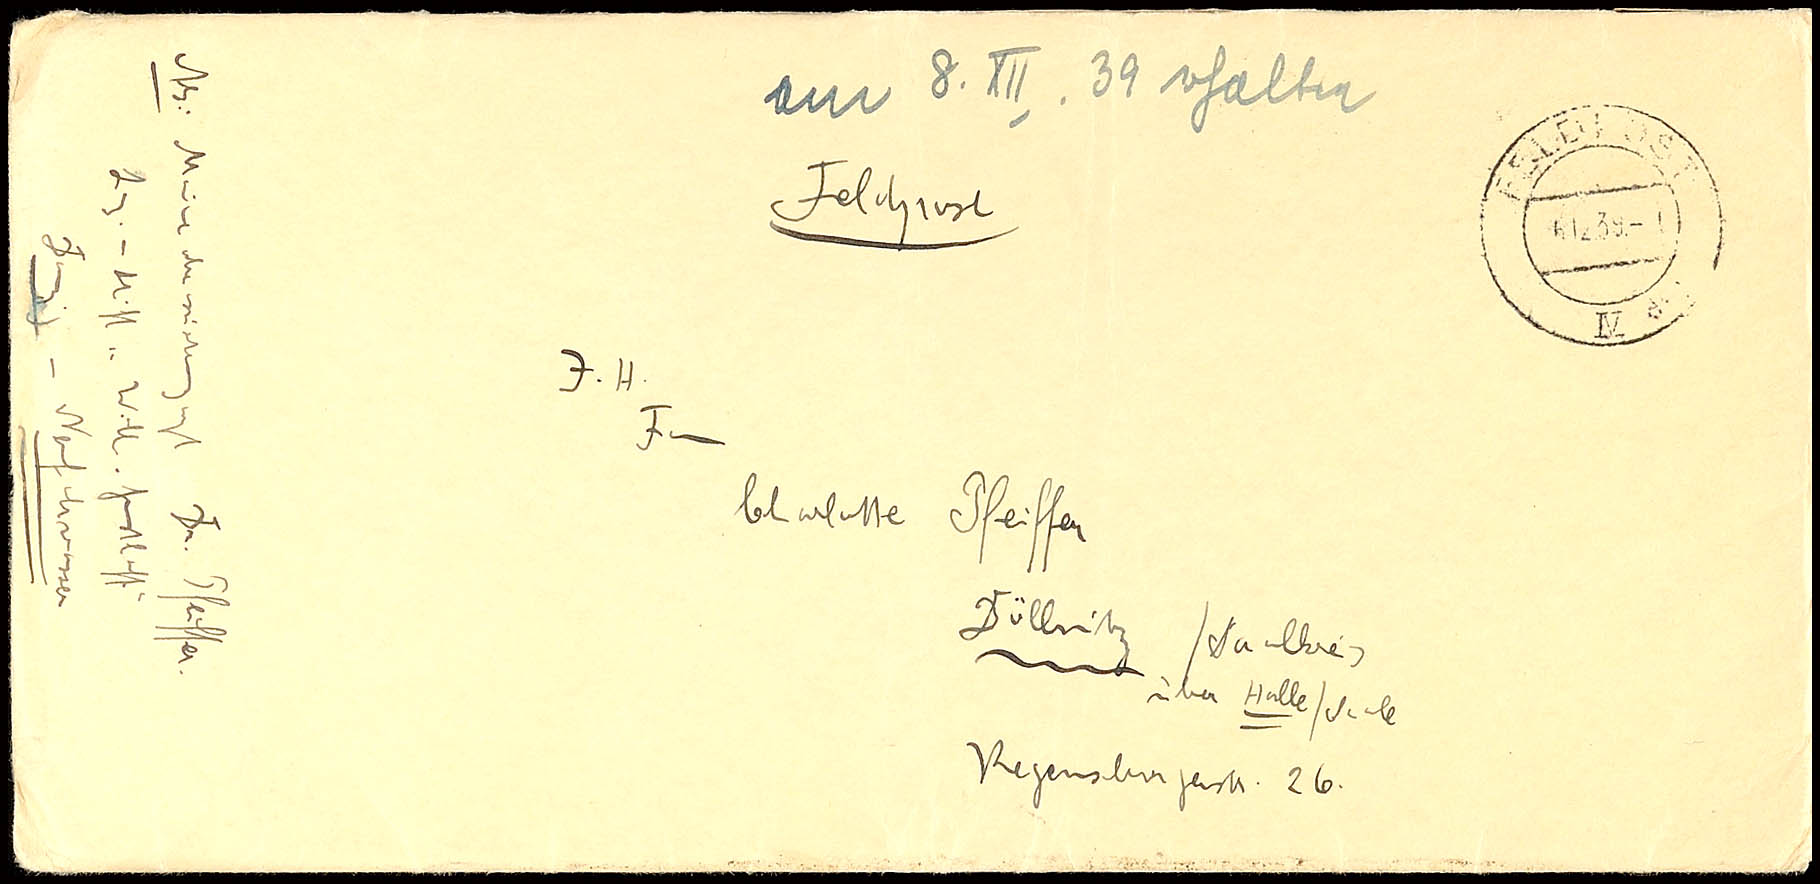 am 8. XII. 39 erhalten
Feldpost
FELDPOST
12.39.-
IV
Z. H.
Frau
Charlotte Pfeiffer
Döllnitz /Saalkreis
über Halle/Saale
Regensburgerstr. 26.
Abs: Dr. Pfeiffer.
Danzig - Neufahrwasser